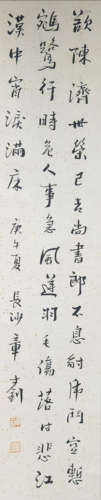 欲陳濟世策已老尚書郎不息豺虎鬥空慙
鵷鷺行時危人事急風逆羽毛傷落日悲江
漢中宵淚滿床 庚午夏長沙章士釗